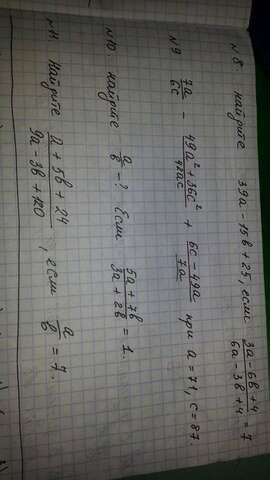 №8. найдите 39a - 15b + 25, если (3a - 6b + 4)/(6a - 3b + 4) = 7
№9 7a/6c - (49a² + 36c²)/42ac + (6c - 49a)/7a при a = 71, c = 87.
№10. найдите a/b - ? Если (5a + 7b)/(3a + 2b) = 1.
№11 Найдите (a + 5b + 24)/(9a - 3b + 120), если a/b = 7.